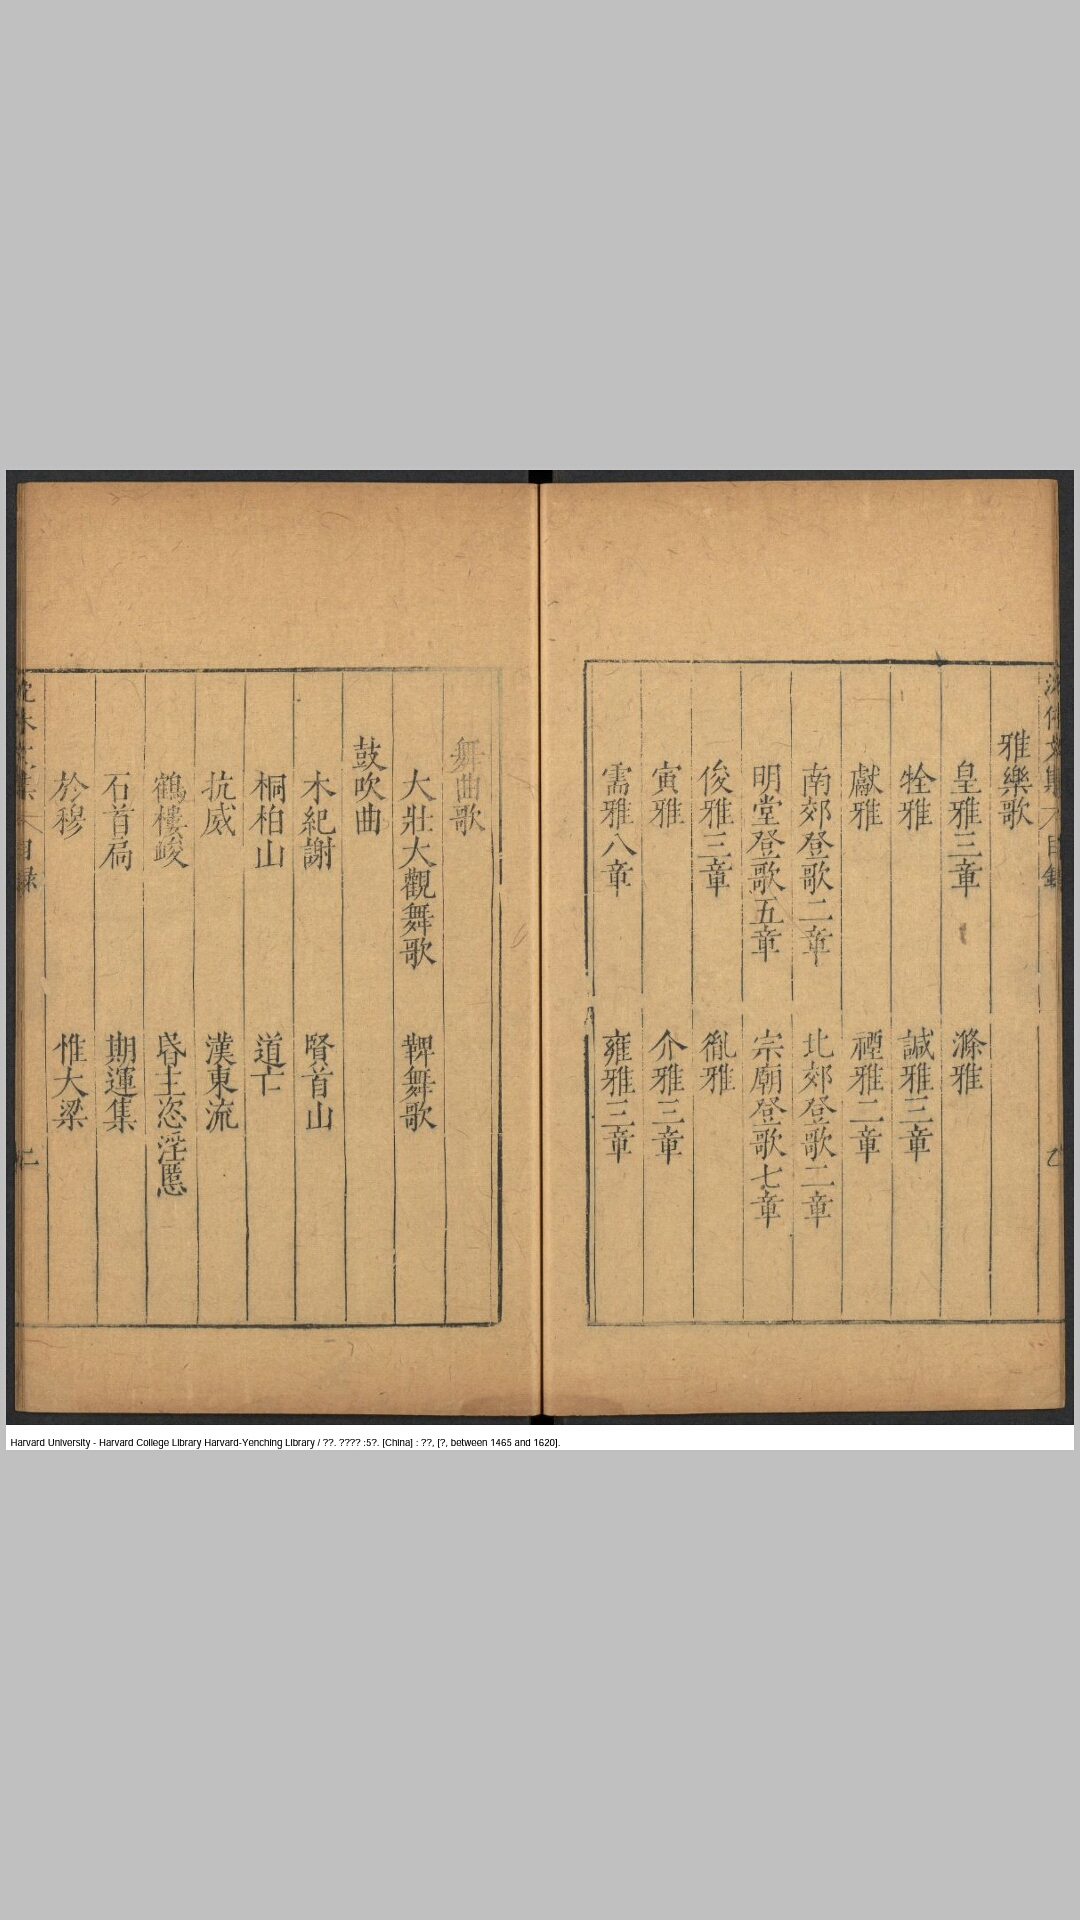 雅樂歌
皇雅三章　滌雅
牷雅　諴雅三章
獻雅　禋雅二章
南郊登歌二章　北郊登歌二章
明堂登歌五章　宗廟登歌七章
俊雅三章　胤雅
寅雅　介雅三章
需雅八章　雍雅三章
舞曲歌
大壯大觀舞歌　鞞舞歌
鼓吹曲
木紀謝　賢首山
桐柏山　道亡
抗威　漢東流
鶴樓峻　昏主恣淫慝
石首局　期運集
於穆　惟大梁
目録
二
Harvard University - Harvard College Library Harvard-Yenching Library / ??. ???? :5?. [China] : ??, [?, between 1465 and 1620].